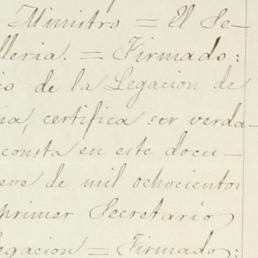 Ministro = El Se-
lleria. = Firmado:
io de la Legacion de
ia, certifica ser verda-
consta en este docu-
eve de mil ochocientos
primer Secretario
Legacion = Firmado: